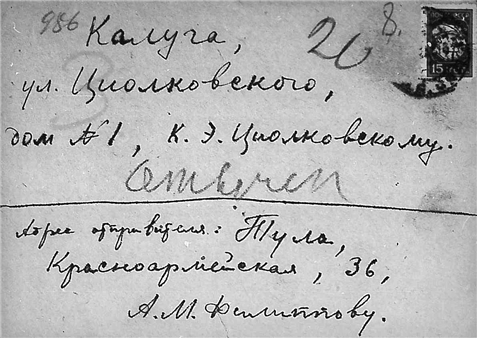 986
20
8.
Калуга,
ул. Циолковского,
3
дом №1, К. Э. Циолковскому.
Отвечен
Адрес отправителя: Тула,
Красноармейская, 36,
А. М. Филиппову.
15